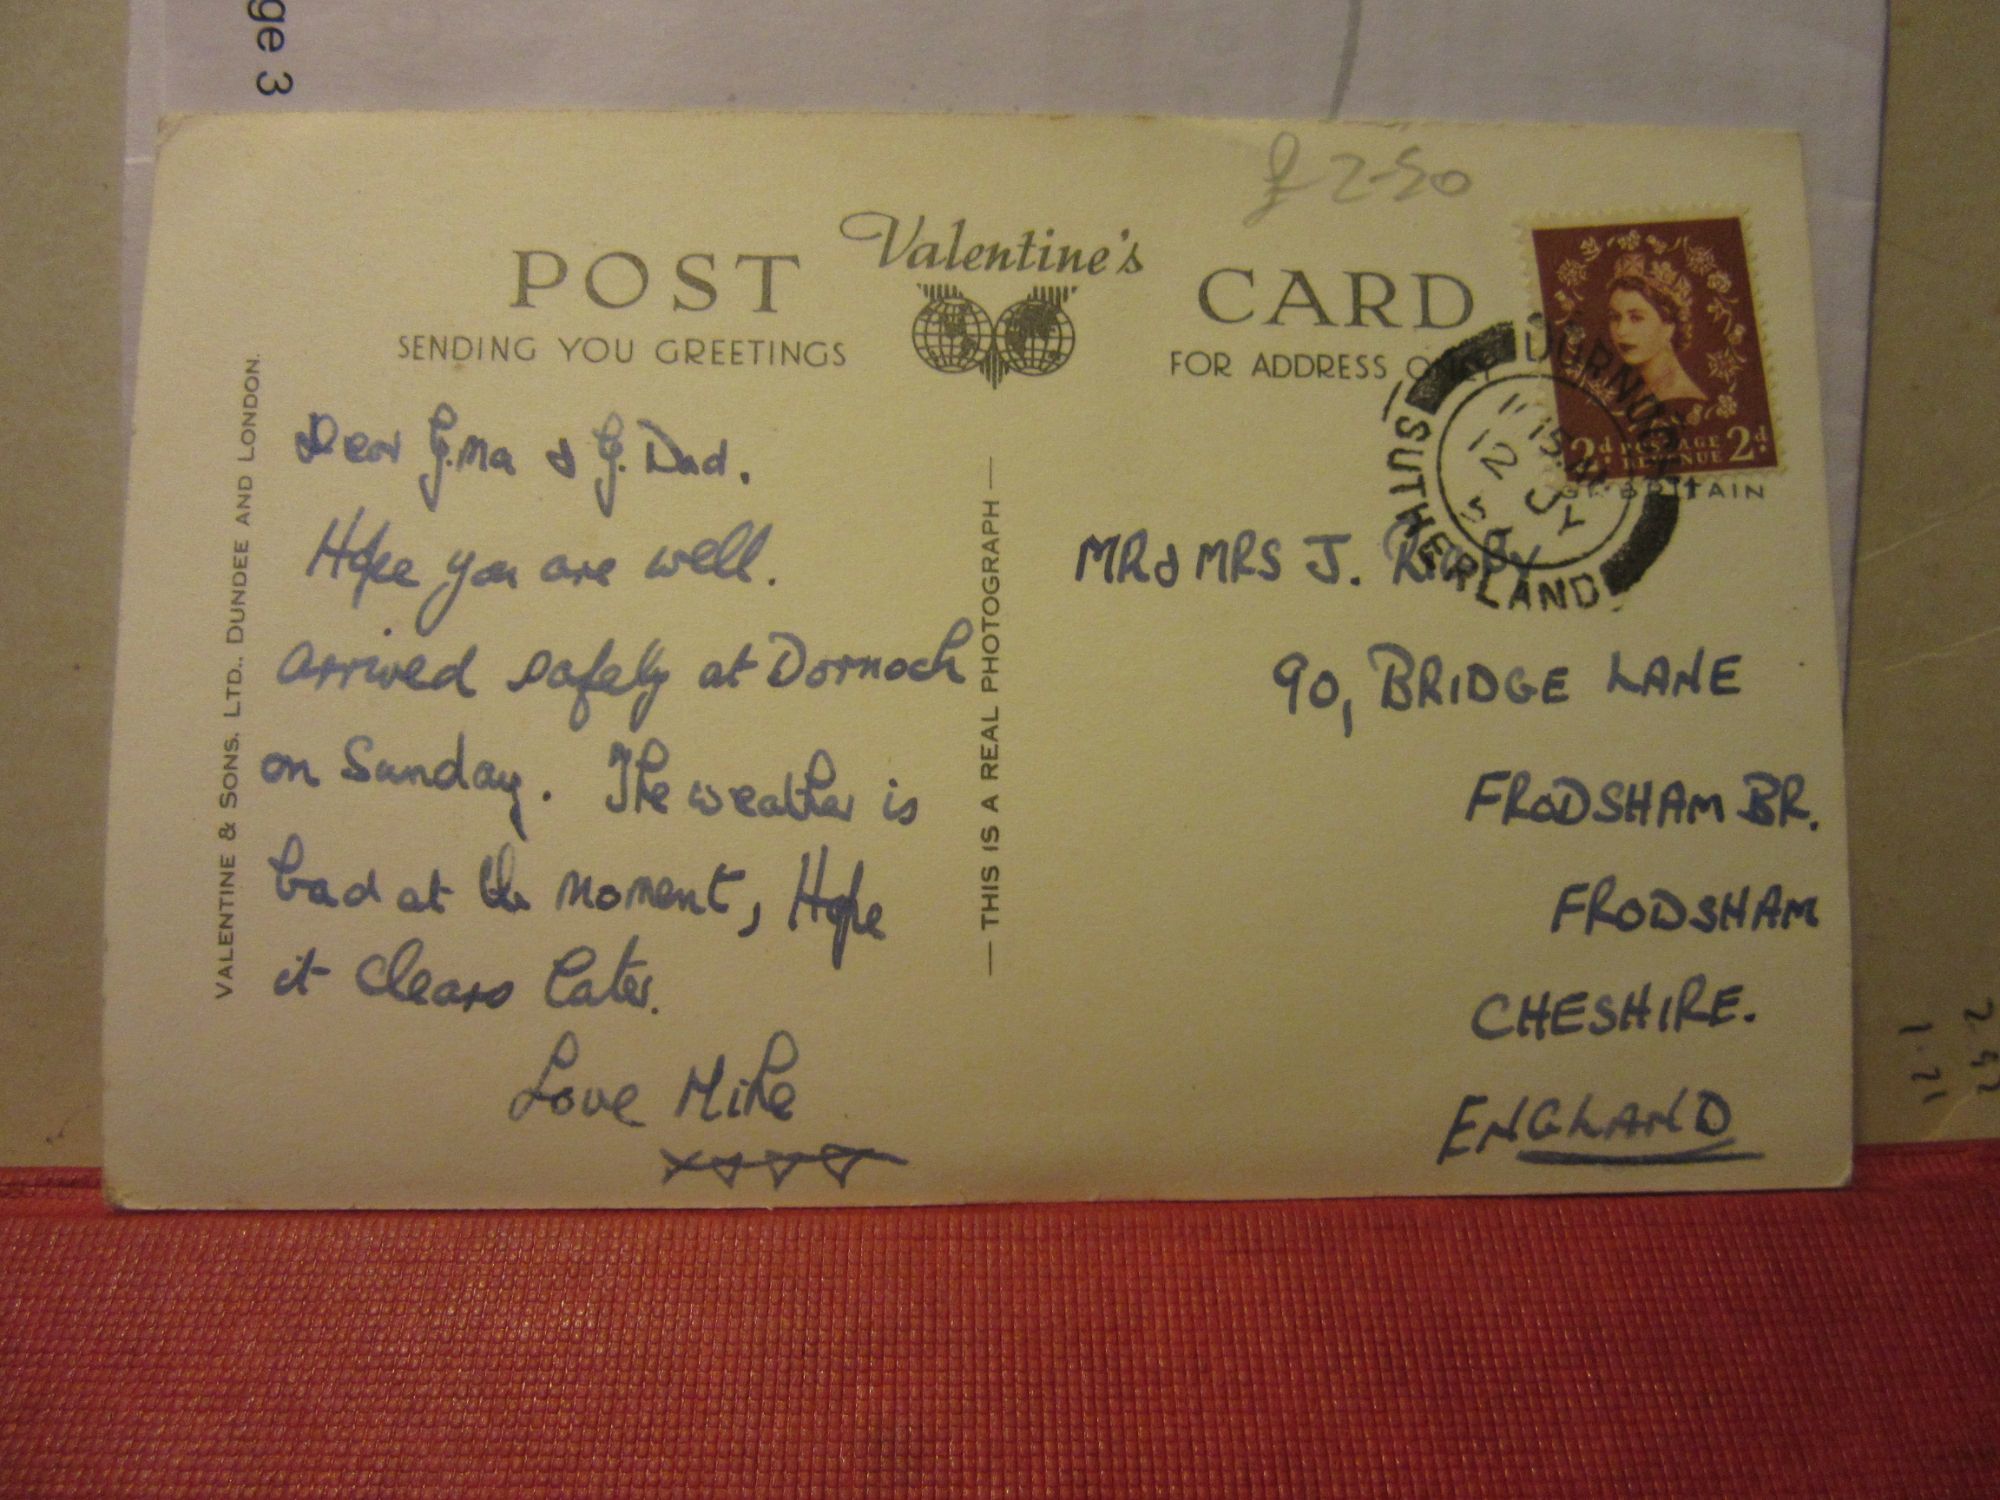 ge 3
£2-50
Valentine's
POST CARD
SENDING YOU GREETINGS
FOR ADDRESS ONLY
2d POSTAGE 2d
REVENUE
GT. BRITAIN
DORNOCH
11 15
12 JY
SUTHERLAND
VALENTINE & SONS. LTD., DUNDEE AND LONDON.
Dear G.Ma & G. Dad.
Hope you are well.
arrived safely at Dornoch
on Sunday. The weather is
bad at the moment, Hope
it Clears later.
Love Mike
— THIS IS A REAL PHOTOGRAPH —
MR & MRS J.
90, BRIDGE LANE
FRODSHAM BR.
FRODSHAM
CHESHIRE.
ENGLAND